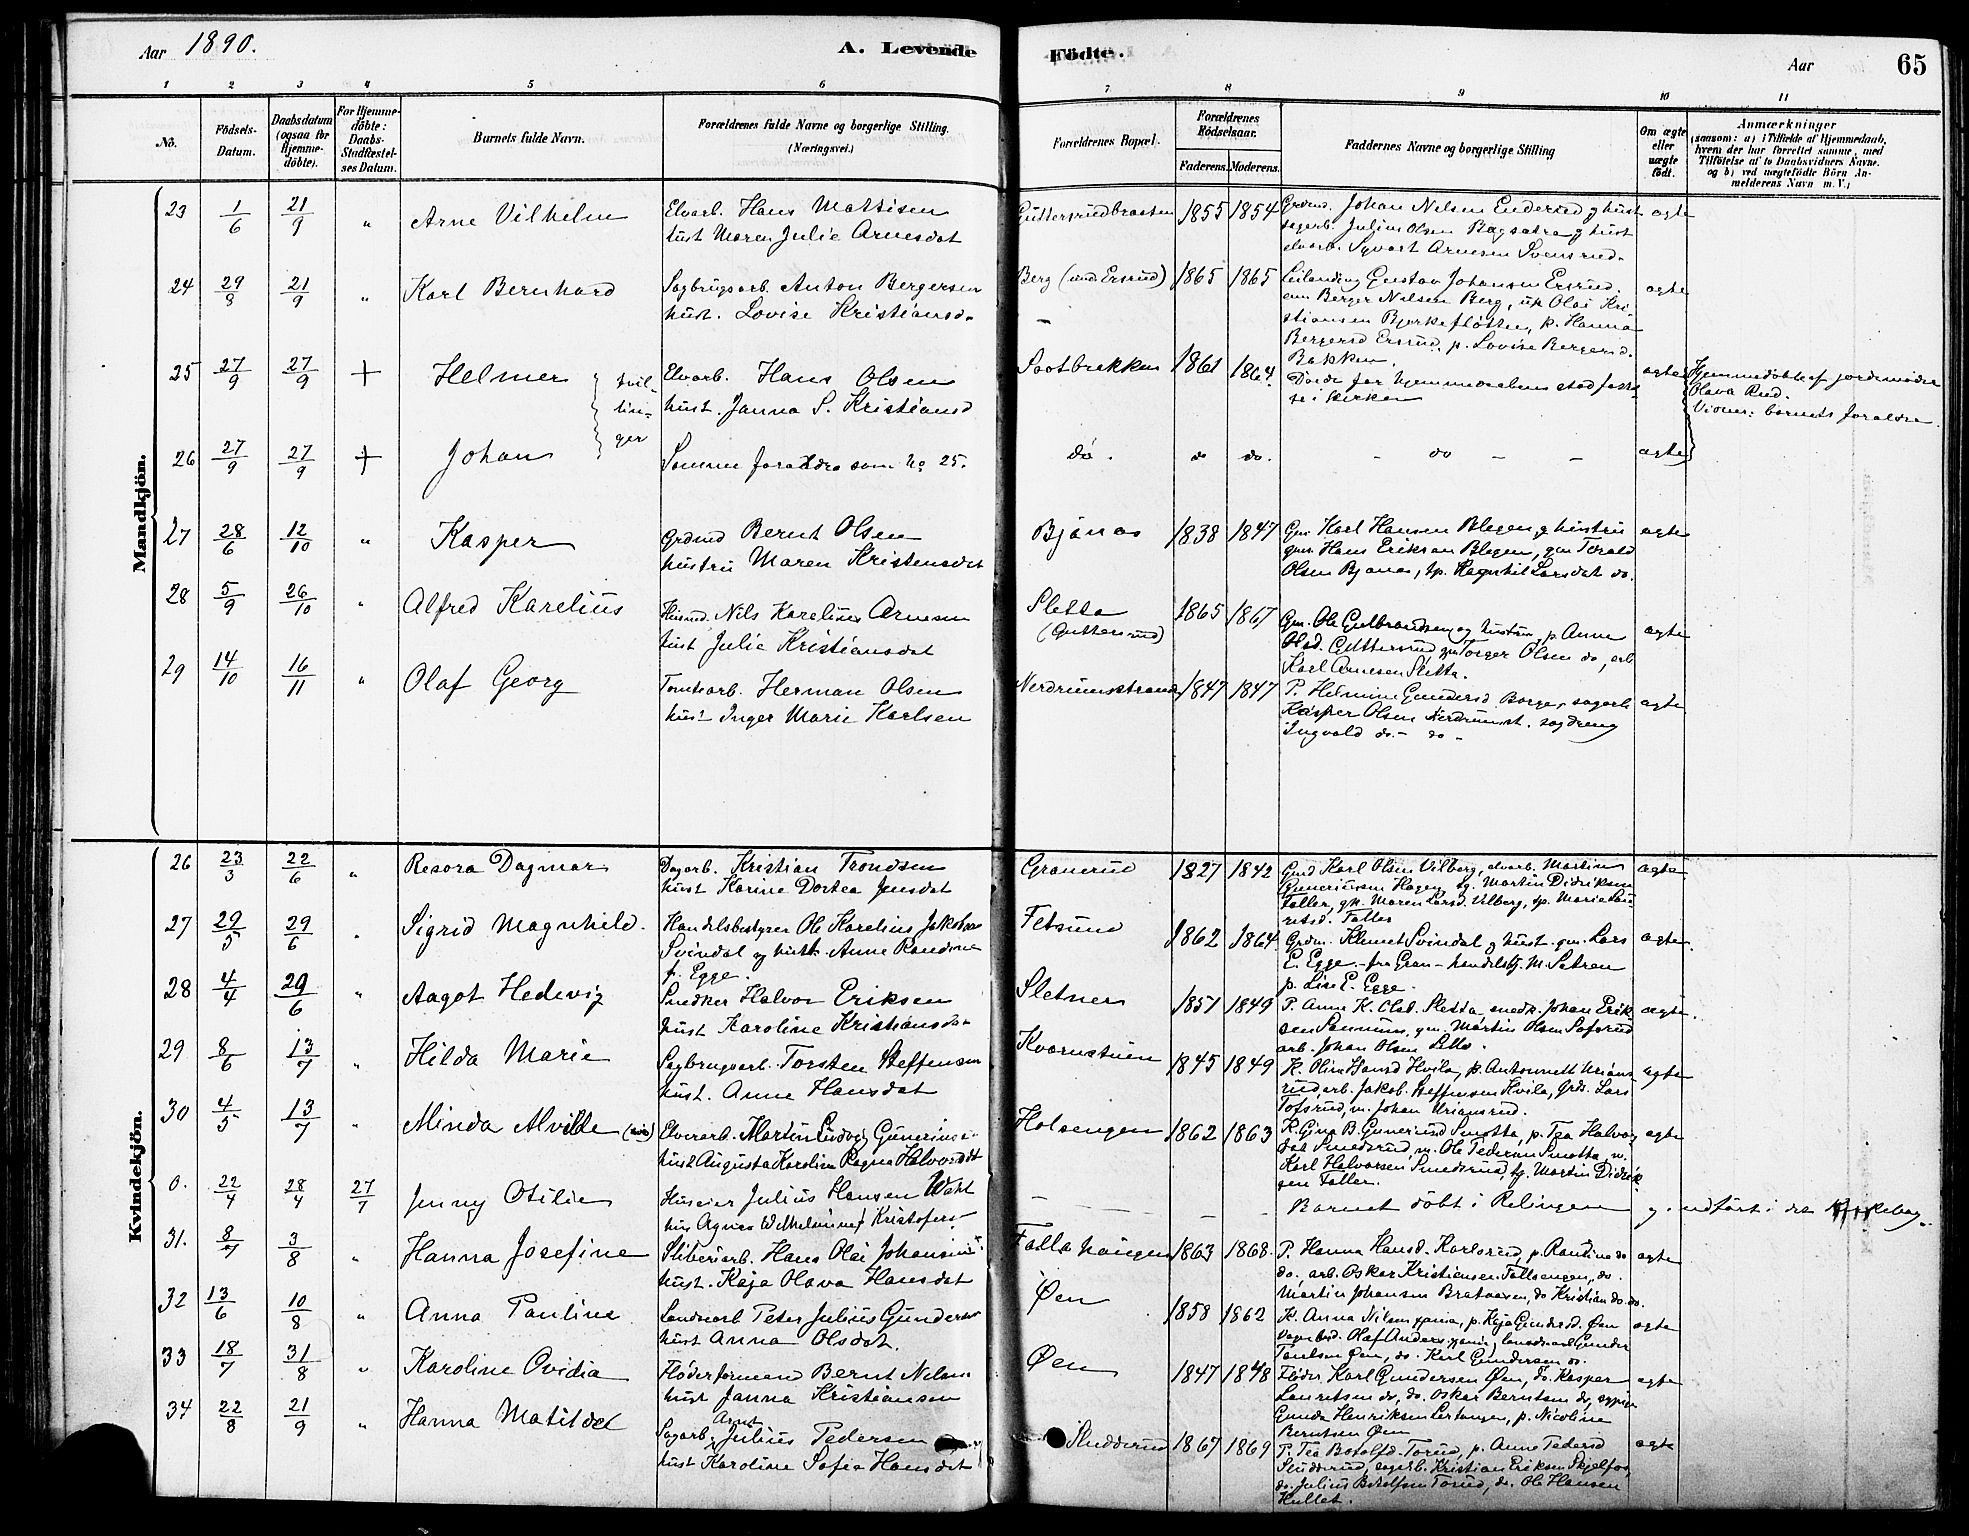 Aar 1890.
A. Levende
Födte.
Aar
65
1 2 3 4 5 6 7 8 9 10 11
No.
Födsels-
Datum.
Daabsdatum
(ogsaa for
Hjemme-
döbte).
For Hjemme-
döbte:
Daabs-
Stadfæstel-
ses Datum.
Barnets fulde Navn.
Forældrenes fulde Navne og borgerlige Stilling.
(Næringsvei.)
Forældrenes Bopæl.
Forældrenes
Födselsaar.
Faderens. Moderens.
Faddernes Navne og borgerlige Stilling
Om ægte
eller
uægte
födt.
Anmærkninger
(saasom: a) i Tilfælde af Hjemmedaab,
hvem der har forrettet samme, med
Tilföielse af to Daabsvidners Navne.
og b) ved uægtefödte Börn An-
melderens Navn m. V.)
Mandkjön.
23 1/6 21/9 " Arne Vilhelm
Elvarb. Hans Mattisen
hust Maren Julie Arnesdat
Guttersrudbraaten 1855 1854
Grdmd. Johan Nilsen Enderud og hust
sagarb. Julius Olsen Bagsætra og hust
elvarb. Syvart Arnesen Svensrud.
ægte
24 29/8 21/9 " Karl Bernhard
Sagbrugsarb. Anton Bergersen
hust. Lovise Kristiansd.
Berg (und. Ersrud) 1865 1865
Leilænding Gustav Johansen Ersrud.
em Berger Nilsen Berg, up. Olai Kri-
stiansen Bjerkefløtten, p. Hanna
Bergersd Ersrud, p. Lovise Bergersd.
Bakken.
ægte
25 27/9 27/9 + Helmer
tvil-
lin-
ger
Elvarb. Hans Olsen
hust. Janna S. Kristiansd
Sootbrekken 1861 1864.
Døde før hjemmedaaben stadfæst-
te i kirken
ægte
Hjemmedøbte af jordemoder
Olava Rud.
Vidner: barnets forældre.
26 27/9 27/9 + Johan
Samme forældre som No 25.
do. do do. - do - -
ægte
27 28/6 12/10 " Kasper
Grdmd Bernt Olsen
hustru Maren Kristensdat
Bjanas 1838 1847
Gm. Karl Hansen Blegen og hustru
gm. Hans Eriksen Blegen, gm Torald
Olsen Bjanas, tp. Magnhil Larsdat do.
ægte
28 5/9 26/10 " Alfred Karelius
Husmd. Nils Karelius Arnesen
hust Julie Kristiansdat
Sletta
(Guttersrud)
1865 1867
Gm. Ole Gulbrandsen og hustru, p. Anne
Olsd. Guttersrud, gm Torger Olsen do, arb.
Karl Arnesen Sletta.
ægte
29 14/10 16/11 " Olaf Georg
Tomtearb. Herman Olsen
hust Inger Marie Karlsen
Nerdrumsstrand 1847 1847
P. Helmine Gundersd. Borge, sagarb
Kasper Olsen Nerdrumst. sagdreng
Ingvald do. - do -
ægte
Kvindekjön.
26 23/3 22/6 " Resora Dagmar
Dagarb. Kristian Trondsen
hust Karine Dortea Jensdat
Granerud 1827 1842
Gmd Karl Olsen Vilberg, elvarb. Martin
Guneriussen Hagen, tg. Martin Didriksen
Faller, gk. Maren Larsd. Vilberg, tp. Marie Lau-
ritsd. Faller
ægte
27 29/5 29/6 " Sigrid Magnhild.
Handelsbestyrer Ole Karolius Jakobsen
Svindal og hust. Anne Randine
f. Egge.
Fetsund 1862 1864
Grdm. Klemet Svindal og hust. gm. Lars
E. Egge - fra Gran - handelsbg. M. Sætren
p. Lise E. Egge.
ægte.
28 4/4 29/6 " Aagot Hedevig
Snedker Halvor Eriksen
hust. Karoline Kristiansdat
Sletner 1857 1849
P. Anne K. Olsd. Sletta, snedk. Johan Erik-
sen Sannum, gm. Martin Olsen Tofsrud
arb. Johan Olsen Sletta.
ægte.
29 8/6 13/7 " Hilda Marie
Sagbrugsarb. Torsten Steffensen
hust. Anne Hansdat
Kvernstuen 1845 1849
K. Oline Hansd Hvila, p. Antonnett Urians-
rud, arb. Jakob Steffensen Hvila, Grd. Lars
Tofsrud, m. Johan Uriansrud.
ægte
30 4/5 13/7 " Minda Alvilde
Elvearb. Martin Ludvig Guneriuss.
hust Augusta Karoline Ragna Halvorsdat
Holsengen 1862 1863
K. Gina B. Guneriusd Smotta, p. Tea Halvors-
dat Smedsrud, m. Ole Pedersen Smotta, m.
Karl Halvorsen Smedsrud, tg. Martin Didrik-
sen Faller.
ægte
0. 22/4 28/4 27/7 Jenny Otilie
Huseier Julius Hansen Wahl
hus Agnes Wilhelmine f Kristofers
- - - -
Barnet døbt i Relingen og indført i det Kirkebog.
31. 8/7 3/8 " Hanna Josefine
Sliberiarb. Hans Olai Johansen
hust. Kaja Olava Hansdat
Fallahaugen 1863 1868.
P. Hanna Hansd. Karlsrud, p. Randine do
do., arb. Oskar Kristiansen Fallaengen, do.
Martin Johansen Brataasen, do Kristian do. do.
ægte
32 13/6 10/8 " Anna Pauline
Landearb Peter Julius Gundersen
hust Anna Olsdat.
Øen 1858 1862
K. Anna Nilsen, p. Kaja Gundersd. Øen
Olaf Anders, Gunder
Øen, do. Karl Gundersen do.
ægte
33 18/7 31/8 " Karoline Ovidia
Fløderformand Bernt Nilsen
hust Janna Kristiansen
Øen 1847 1848
Fløder Karl Gundersen Øen, do. Kasper
Lauritsen do, do. Oskar Berntsen do, sypige
Gunda Henriksen Lertangen, p. Nicoline
Berntsen Øen
ægte
34 22/8 21/9 " Hanna Matilde
Sagarb. Arnt Julius Pedersen
hust Karoline Sofie Hansdat
Studderud 1867 1869
P. Tea Botolfd. Torud, p. Anne Pedersd
Studderud, sagarb. Kristian Eriksen Skjelfos,
do. Julius Botolfsen Torud, do. Ole Hansen
Hullet.
ægte